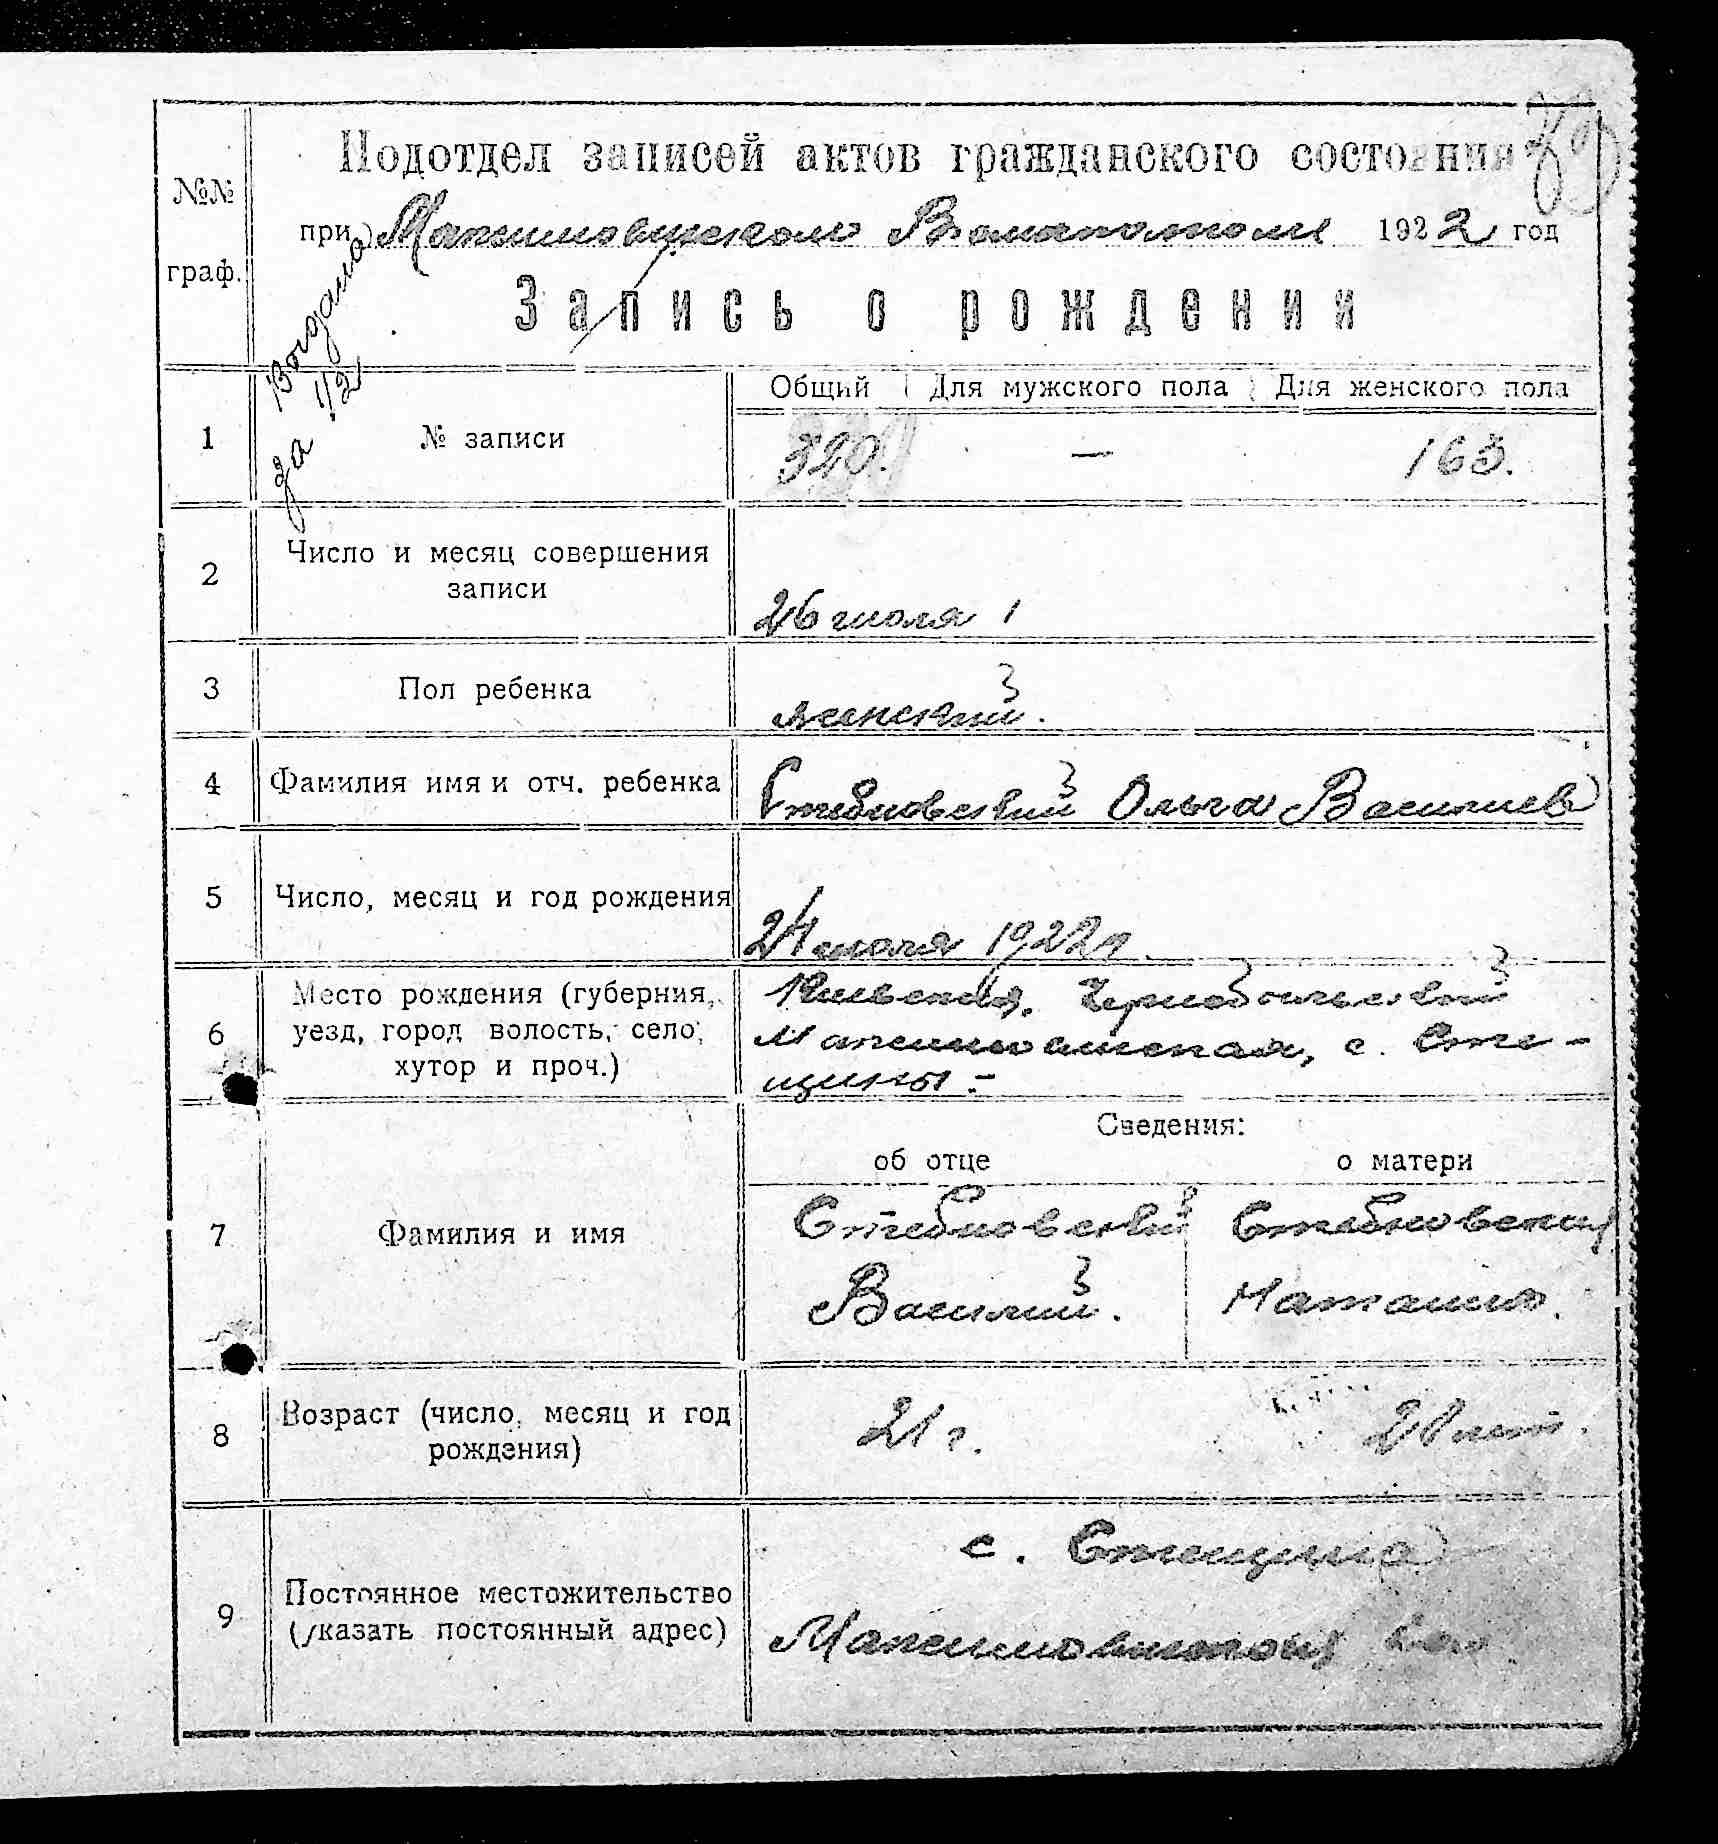 Подотдел записей актов гражданского состояния
при Максимовическом Волисполкоме 1922 год
Запись о рождении
Выдана
за 112
№№
граф.
Общий Для мужского пола Для женского пола
1 № записи 320. — 163.
2 Число и месяц совершения
записи
26 июля
3 Пол ребенка женский.
4 Фамилия имя и отч. ребенка Стебновский Ольга Васильев
5 Число, месяц и год рождения
24 июля 1922 г.
6 Место рождения (губерния, Киевская, Чернобыльский
уезд, город волость, село, Максимовическая, с. Сте-
хутор и проч.) щины -
Сведения:
об отце о матери
7 Фамилия и имя Стебновский Стебновская
Василий. Наталия.
8 Возраст (число, месяц и год 21 г. лет.
рождения)
9 с. Стещина
Постоянное местожительство
(указать постоянный адрес)